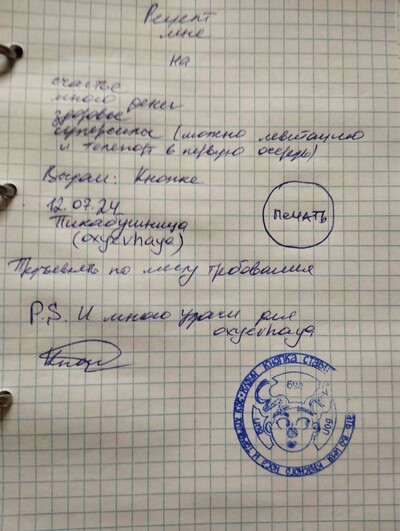 Рецепт
мне
на
счастье
много денег
здоровье
суперсилы (можно левитацию
и телепорт в первую очередь)
Выдан: Кнопке
12.07.24
Пикабушница
(oxyevhaya)
ПЕЧАТЬ
Предъявлять по месту требования
P.S. И много удачи для
oxyevhaya
Кнопка ставит
бип
боп
буп